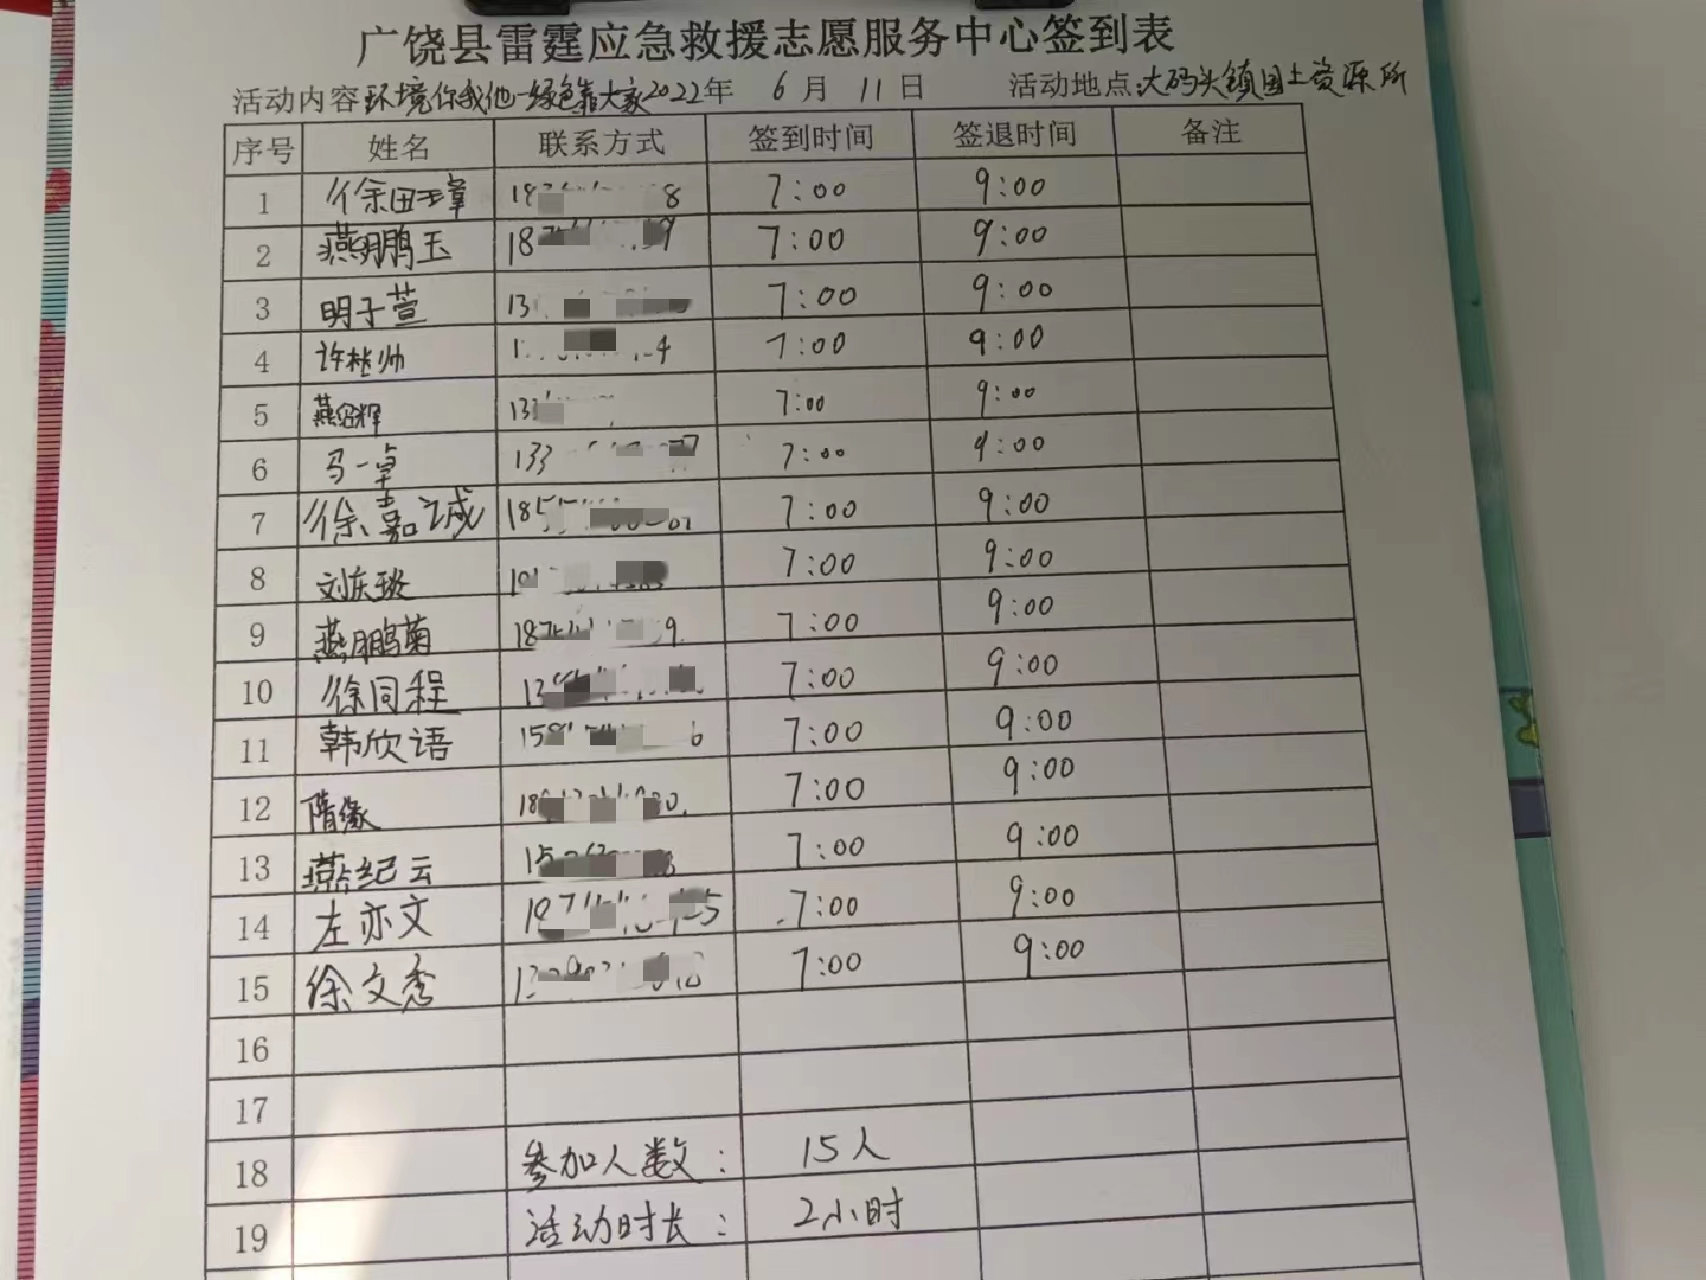 广饶县雷霆应急救援志愿服务中心签到表
活动内容 环境你我他一绿色靠大家 2022年 6月 11日 活动地点:大码头镇国土资源所
序号 姓名 联系方式 签到时间 签退时间 备注
1 徐田玉章 7:00 9:00
2 燕鹏玉 18 7:00 9:00
3 明子萱 13 7:00 9:00
4 许 帅 7:00 9:00
5 燕绍辉 7:00 9:00
6 马一卓 133 7:00 9:00
7 徐嘉诚 185 7:00 9:00
8 刘东琰 7:00 9:00
9 燕鹏菊 18 7:00 9:00
10 徐同程 7:00 9:00
11 韩欣语 7:00 9:00
12 隋缘 7:00 9:00
13 燕纪云 7:00 9:00
14 左亦文 7:00 9:00
15 徐文秀 7:00 9:00
16
17
18 参加人数: 15人
19 活动时长: 2小时